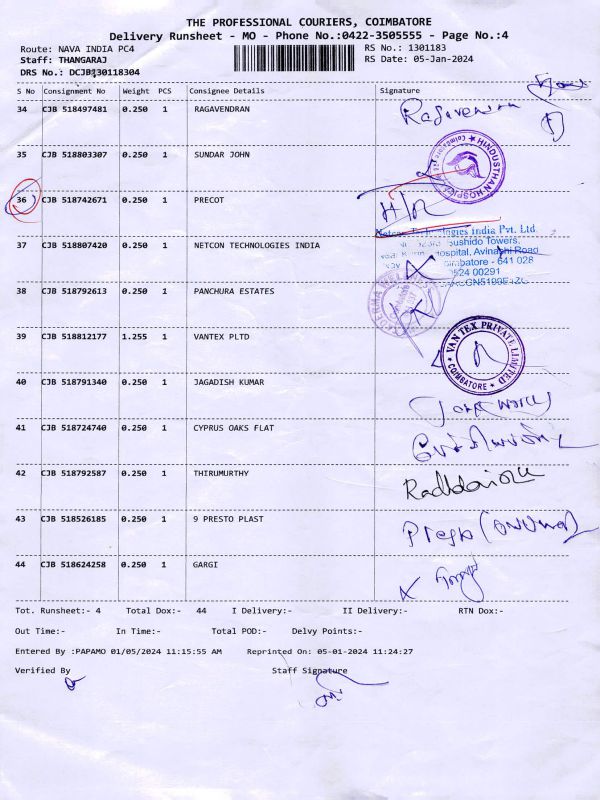 THE PROFESSIONAL COURIERS, COIMBATORE
Delivery Runsheet - MO - Phone No.:0422-3505555 - Page No.:4
Route: NAVA INDIA PC4 RS No.: 1301183
Staff: THANGARAJ RS Date: 05-Jan-2024
DRS No.: DCJB130118304
S No Consignment No Weight PCS Consignee Details Signature
34 CJB 518497481 0.250 1 RAGAVENDRAN Ragavendran
35 CJB 518803307 0.250 1 SUNDAR JOHN
HINDUSTHAN HOSPITAL
36 CJB 518742671 0.250 1 PRECOT
Netcon Technologies India Pvt. Ltd.
37 CJB 518807420 0.250 1 NETCON TECHNOLOGIES INDIA
Bushido Towers,
Hospital, Avinashi Road
Coimbatore - 641 028
38 CJB 518792613 0.250 1 PANCHURA ESTATES
39 CJB 518812177 1.255 1 VANTEX PLTD
VAN TEX PRIVATE LIMITED
COIMBATORE
40 CJB 518791340 0.250 1 JAGADISH KUMAR
41 CJB 518724740 0.250 1 CYPRUS OAKS FLAT
42 CJB 518792587 0.250 1 THIRUMURTHY
43 CJB 518526185 0.250 1 9 PRESTO PLAST
44 CJB 518624258 0.250 1 GARGI
Tot. Runsheet:- 4 Total Dox:- 44 I Delivery:- II Delivery:- RTN Dox:-
Out Time:- In Time:- Total POD:- Delvy Points:-
Entered By :PAPAMO 01/05/2024 11:15:55 AM Reprinted On: 05-01-2024 11:24:27
Verified By Staff Signature